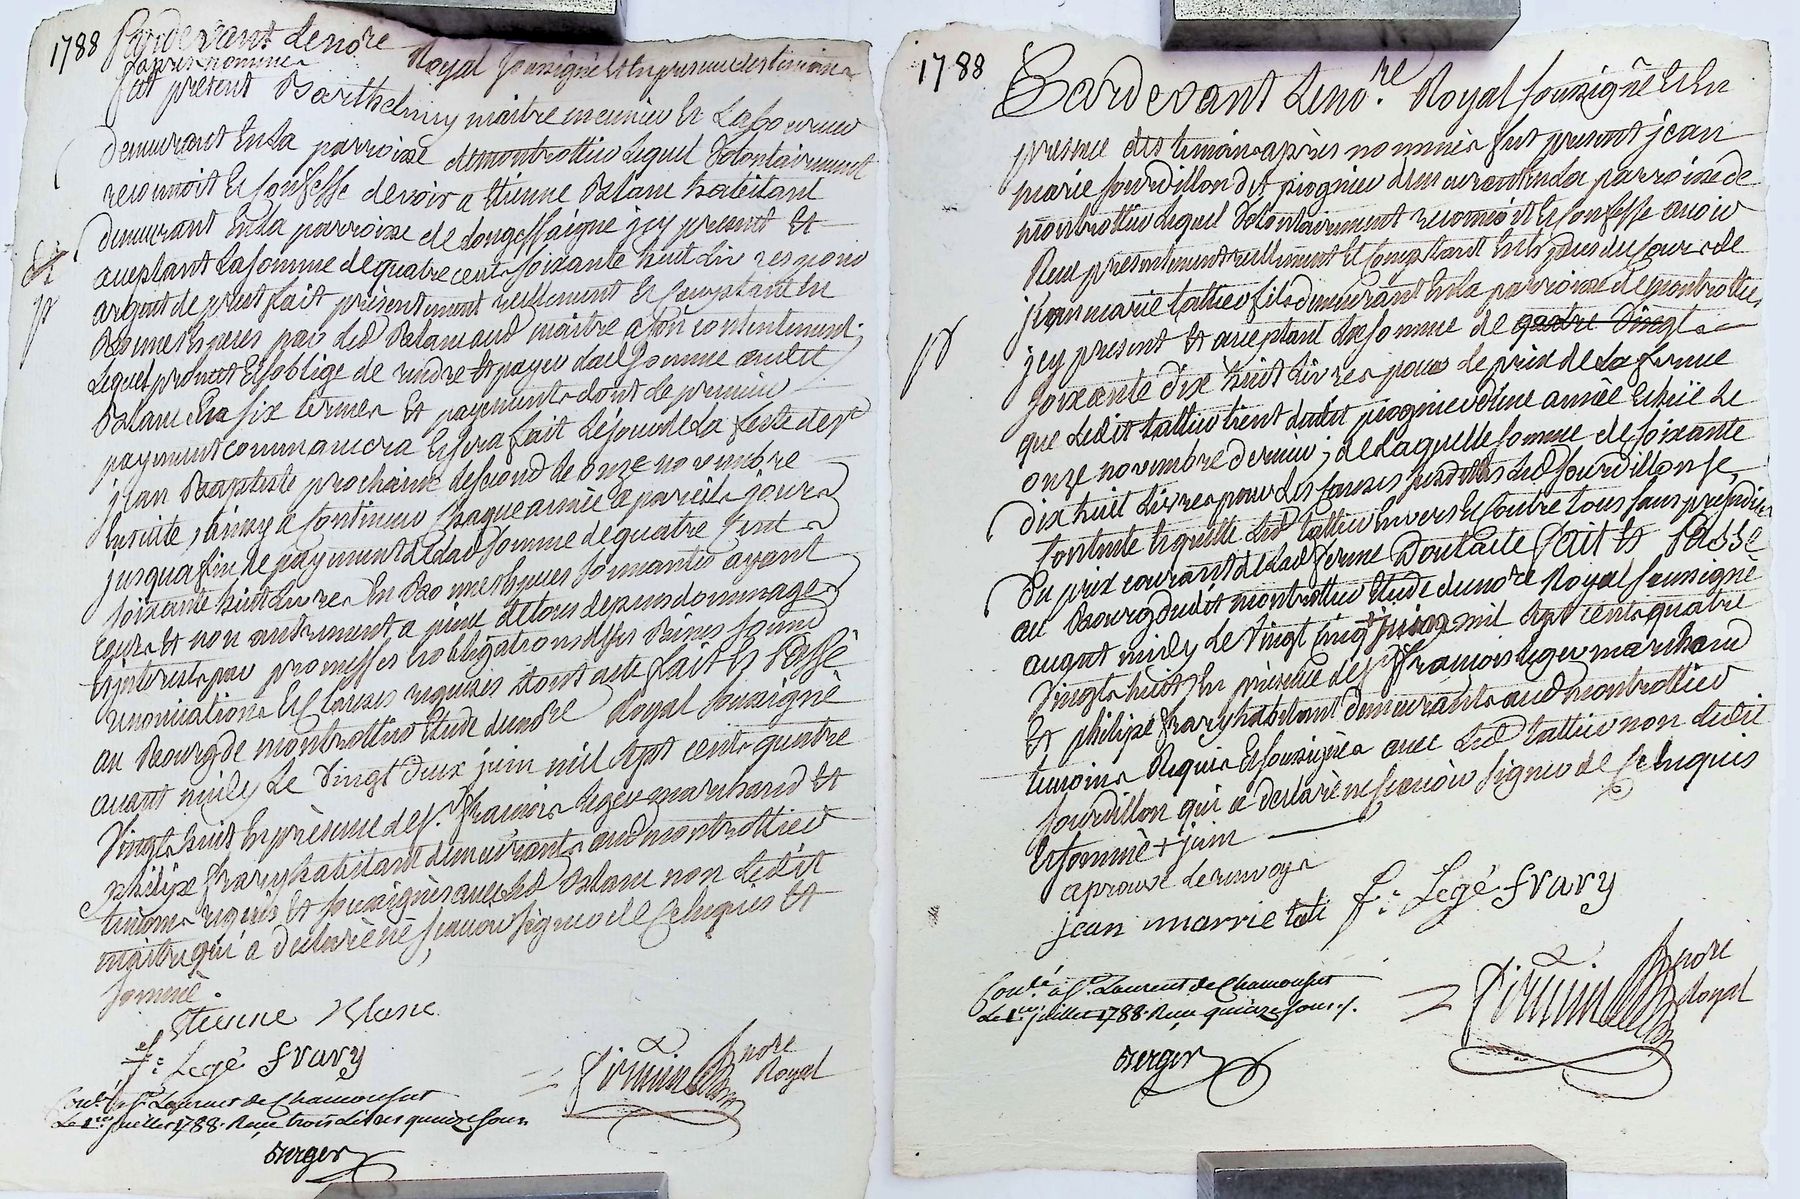 1788 Pardevant Le nore Royal Soussigné Et En presence des temoins
cy apres nommés
fut present Barthelmy maitre meunier Et Laboureur
demeurant En la parroisse de montrottier Lequel volontairement
reconnoit Et Confesse devoir a Etienne Blanc habitant
demeurant En la parroisse de Longessaigne icy present Et
acceptant la somme de quatre cents soixante huit Livres
argent de prest fait presentement reellement Et Comptant En
Bonnes Especes par led Blanc aud maitre a son contentement
Lequel promet Et s'oblige de rendre Et payer lad somme audit
Blanc En six termes Et payements dont Le premier
payement commancera Et sera fait Le jour de La feste de st
jean Baptiste prochaine Le second Le onze novembre
Ensuite, ainsy a Continuer Chaque année a pareils jours
jusqu'a fin de payement de lad somme de quatre Cent
soixante huit Livres En Bonnes Especes sonnantes ayant
cours Et non autrement a peine de tous depens dommages
Et interests par promesses obligations de ses Biens soumis
renonciations Et Clauses requises dont acte fait Et Passé
au Bourg de montrottier Etude du nore Royal Soussigné
avant midy Le vingt deux juin mil sept cents quatre
vingts huit En presence de sr. François Leger marchand Et
philipe fravy habitant demeurants aud montrottier
temoins requis Et soussignés avec led Blanc non Ledit
maitre qui a declaré ne scavoir signer de Ce Enquis Et
sommé.
Etienne Blanc
f: Legé fravy
nore Royal
Conté. a st. Laurent de Chamousset
Le 1er juillet 1788. Reçu trois Livres quinze sous
Berger
1788
Pardevant Le nore. Royal Soussigné Et En
presence des temoins après nommés fut present jean
marie Sourdillon dit piognieu demeurant En la parroisse de
montrottier Lequel volontairement reconnoit Et Confesse avoir
Reçu presentement reellement Et Comptant En Especes du Cours de
jean marie tattier fils demeurant En la parroisse de montrottier
icy present Et acceptant La somme de quatre vingts
soixante dix huit Livres pour Le prix de La ferme
que Ledit tattier tient dudit piognieu d'une année Echüe Le
onze novembre dernier; de Laquelle somme de soixante
dix huit Livres pour Les Causes susdittes Led Sourdillon se
contente En quitte Led tattier Envers Et Contre tous sans prejudice
du prix courant de Lad ferme Dont acte fait Et Passé
au Bourg dudit montrottier Etude du nore Royal Soussigné
avant midy Le vingt Cinq + juin mil sept cents quatre
vingts huit En présence de sr François Leger marchand
Et philipe fravy habitant demeurants aud montrottier
temoins Requis Et soussignés avec Led tattier non Ledit
sourdillon qui a declaré ne scavoir signer de Ce Enquis
Et sommé + juin
aprouvé Le renvoys
jean marrie tati f: Legé fravy
nore Royal
Conté. a st. Laurent de Chamousset
Le 1er juillet 1788. Reçu quinze sous.
Berger